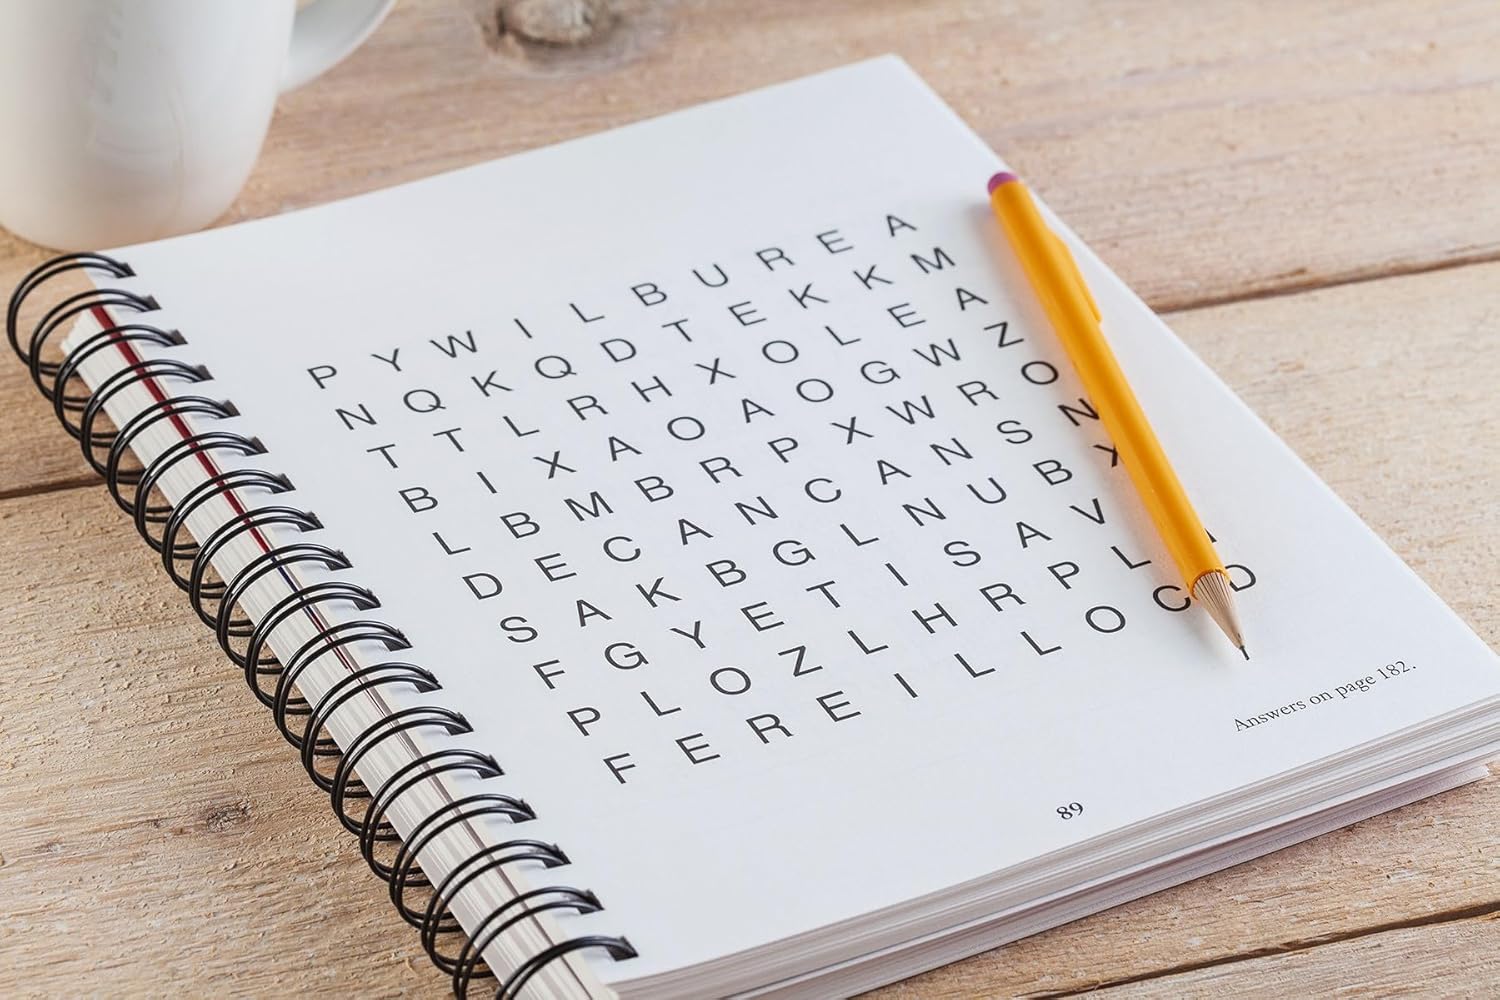 P Y W I L B U R E A
N Q K Q D T E K K M
T T L R H X O L E A
B I X A O A O G W Z
L B M B R P X W R O
D E C A N C A N S N
S A K B G L N U B X
F G Y E T I S A V
P L O Z L H R P L
F E R E I L L O C D
Answers on page 182.
89